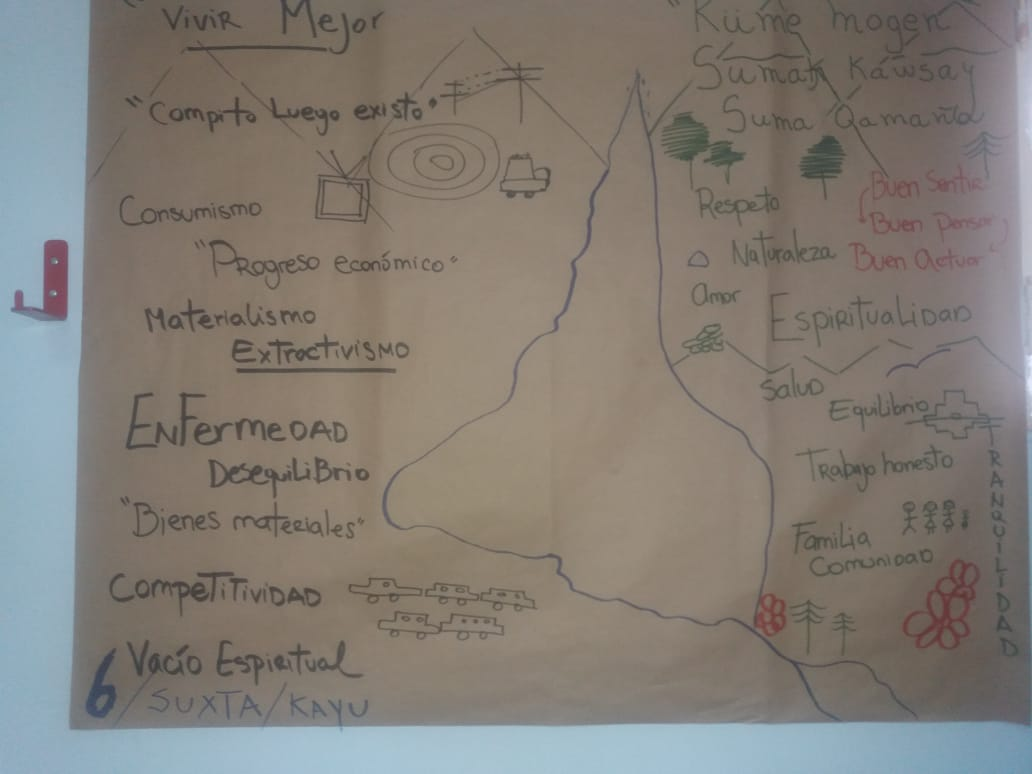 "Vivir Mejor
"Compito Luego existo"
Consumismo
"Progreso económico"
Materialismo
Extractivismo
Enfermedad
Desequilibrio
"Bienes materiales"
Competitividad
Vacío Espiritual
6/SUXTA/KAYU
"Küme mogen
Sumak Káwsay
Suma Qamaña
Buen Sentir
Buen Pensar
Buen Actuar
Respeto
Naturaleza
Amor
Espiritualidad
Salud
Equilibrio
Trabajo honesto
Familia
Comunidad
TRANQUILIDAD